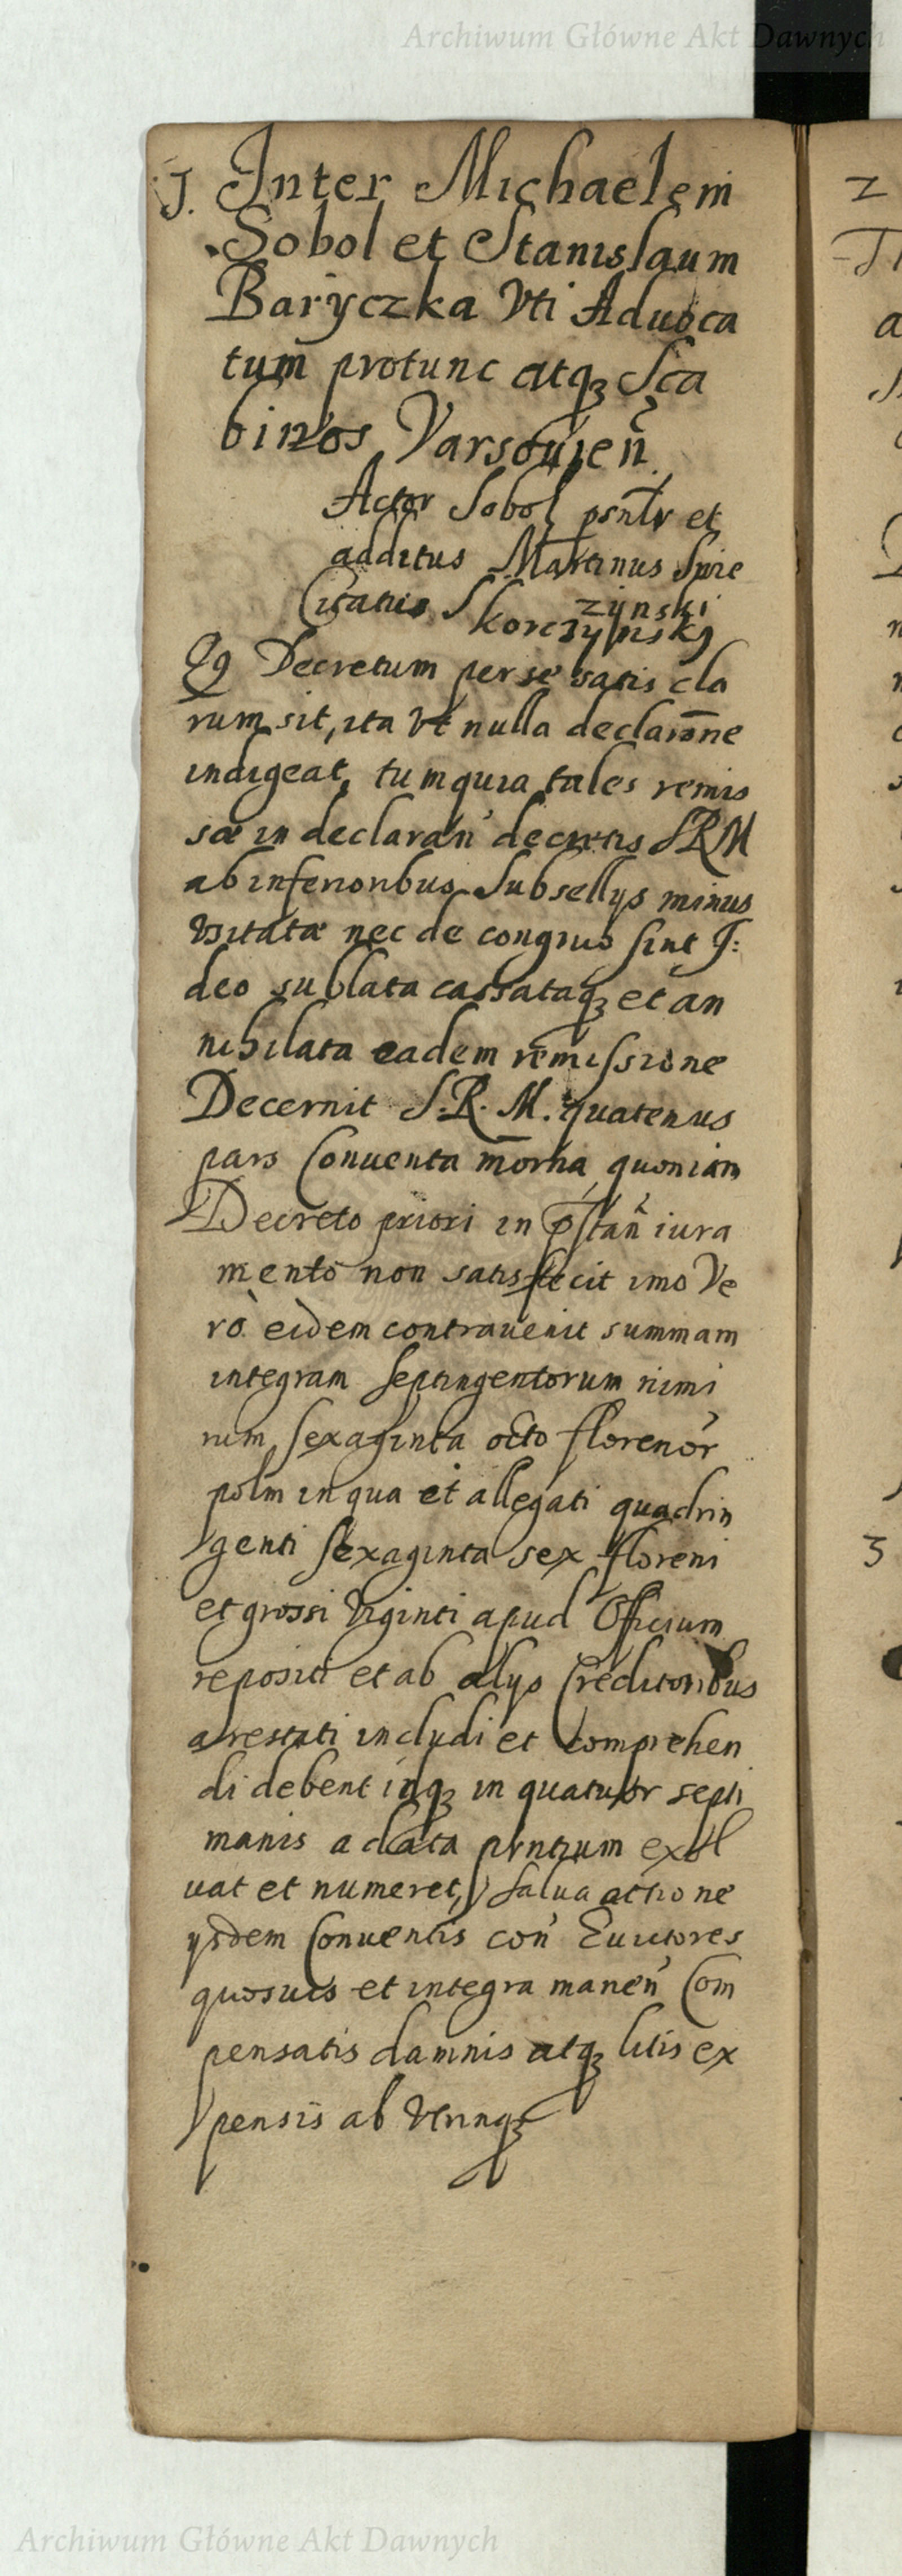 Archiwum Główne Akt Dawnych
J. Inter Michaelem
Sobol et Stanislaum
Baryczka Vti Aduoca
tum protunc atqȝ Sca
binos Varsouien̄
Actor Sobol psn̄tr et
additus Martinus Spie
zynski
Citatus Skorczynsky
Qȝ Decretum per se satis cla
rum sit, ita Vt nulla declarōne
indigeat, tum quia tales remis
sæ in declaran̄ decretis SRM
ab inferioribus Subsellys minus
Vsitatæ nec de congruo sint J:
deo sublata cassataqȝ et an
nihilata eadem remissione
Decernit S.R.M. quatenus
pars Conuenta quoniam
Decreto priori in p̄stan̄ iura
mento non satisfecit imo Ve
rò eidem contrauenit summam
integram septingentorum nimi
rum sexaginta octo florenor̄
polm in qua et allegati quadrin
genti sexaginta sex floreni
et grossi Viginti apud Officium
repositi et ab alys Creditoribus
arestati includi et comprehen
di debent inqȝ in quatuor septi
manis a data pn̄tium exol
uat et numeret, salua actione
ysdem Conuentis con̄ Euictores
quosuis et integra manen̄ Com
pensatis damnis atqȝ litis ex
pensis ab Vtrinqȝ
2
3
Archiwum Główne Akt Dawnych